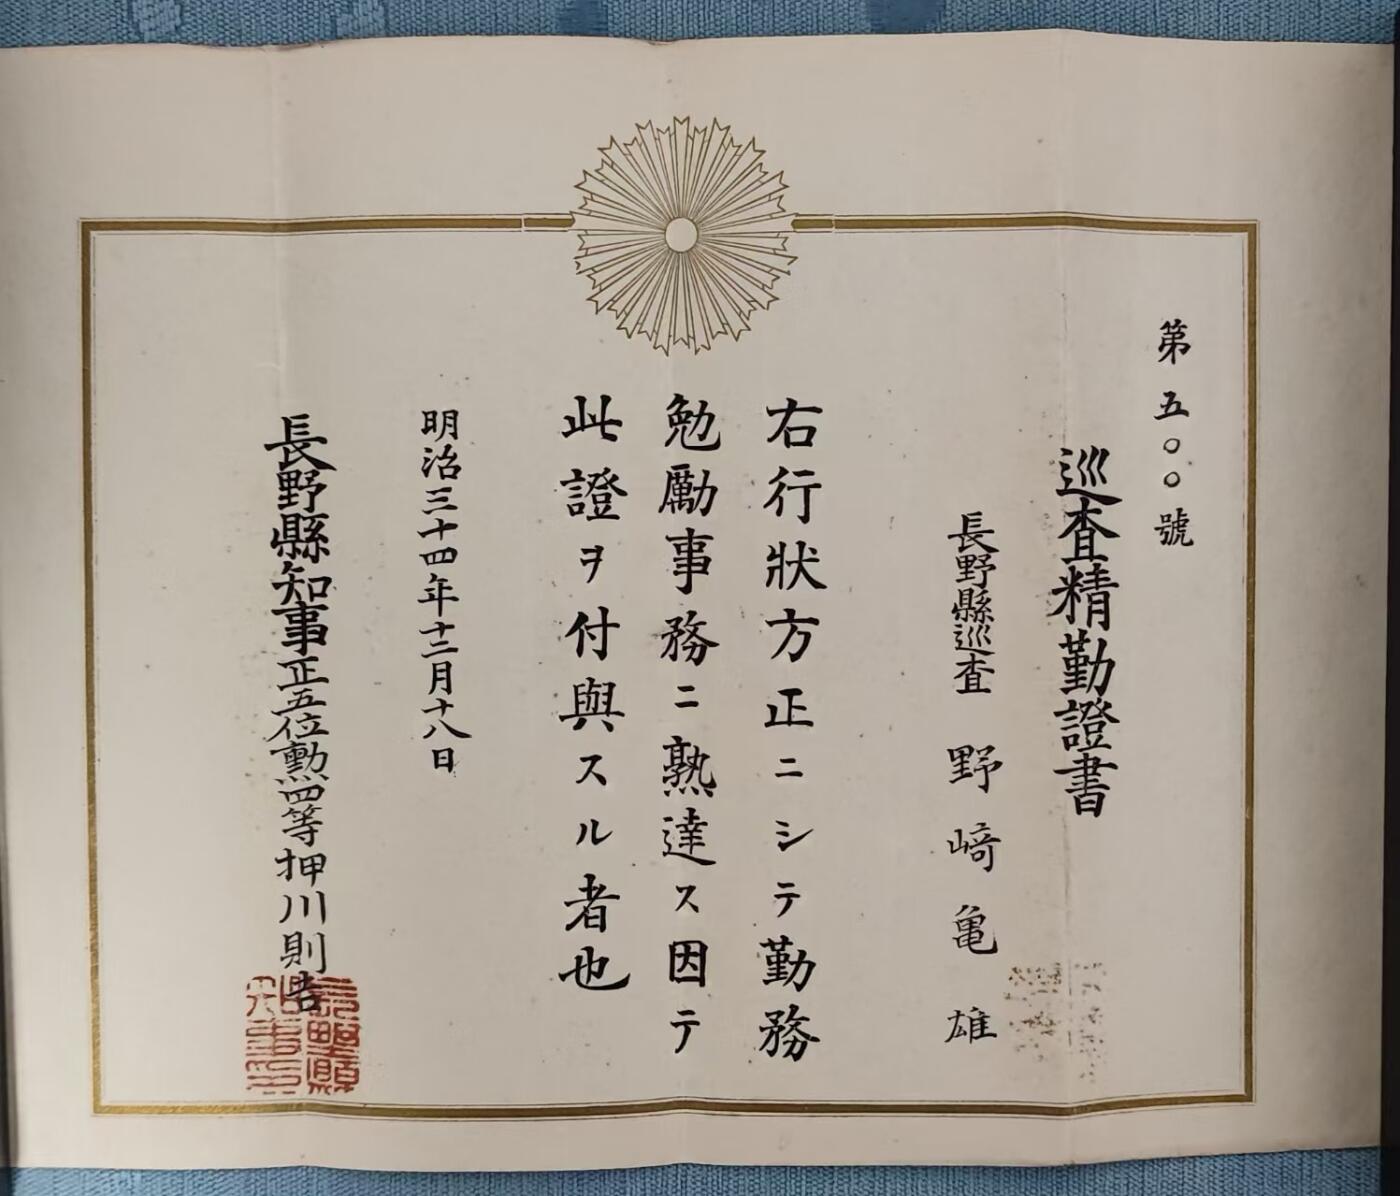 第五〇〇號
巡査精勤證書
長野縣巡査 野﨑亀雄
右行狀方正ニシテ勤務
勉勵事務ニ熟達ス因テ
此證ヲ付與スル者也
明治三十四年十二月十八日
長野縣知事正五位勲四等押川則吉
長野縣知事印